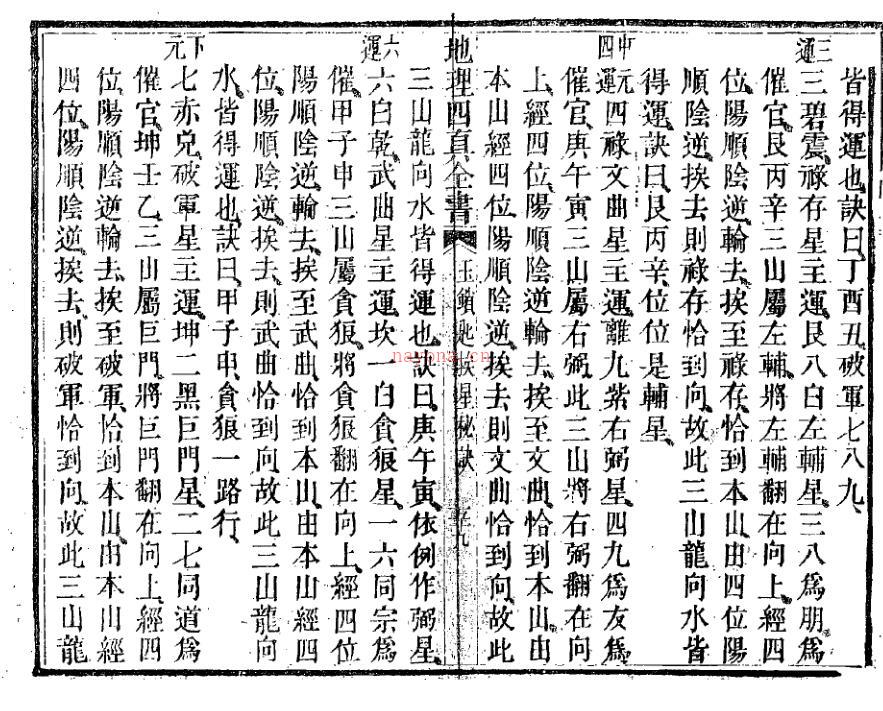 皆得運也訣曰丁酉丑破軍七八九
三運
三碧震祿存星主運艮八白左輔星三八爲朋爲
催官艮丙辛三山屬左輔將左輔翻在向上經四
位陽順陰逆輪去挨至祿存恰到本山由四位陽
順陰逆挨去則祿存恰到向故此三山龍向水皆
得運訣曰艮丙辛位位是輔星
中元四運
四祿文曲星主運離九紫右弼星四九爲友爲
催官庚午寅三山屬右弼此三山將右弼翻在向
上經四位陽順陰逆輪去挨至文曲恰到本山由
本山經四位陽順陰逆挨去則文曲恰到向故此
地理四真全書
玉鎖匙挨星秘訣
三山龍向水皆得運也訣曰庚午寅依例作弼星
六運
六白乾武曲星主運坎一白貪狼星一六同宗爲
催甲子申三山屬貪狼將貪狼翻在向上經四位
陽順陰逆輪去挨至武曲恰到本山由本山經四
位陽順陰逆挨去則武曲恰到向故此三山龍向
水皆得運也訣曰甲子申貪狼一路行
下元
七赤兌破軍星主運坤二黑巨門星二七同道爲
催官坤壬乙三山屬巨門將巨門翻在向上經四
位陽順陰逆輪去挨至破軍恰到本山由本山經
四位陽順陰逆挨去則破軍恰到向故此三山龍
nayona.cn